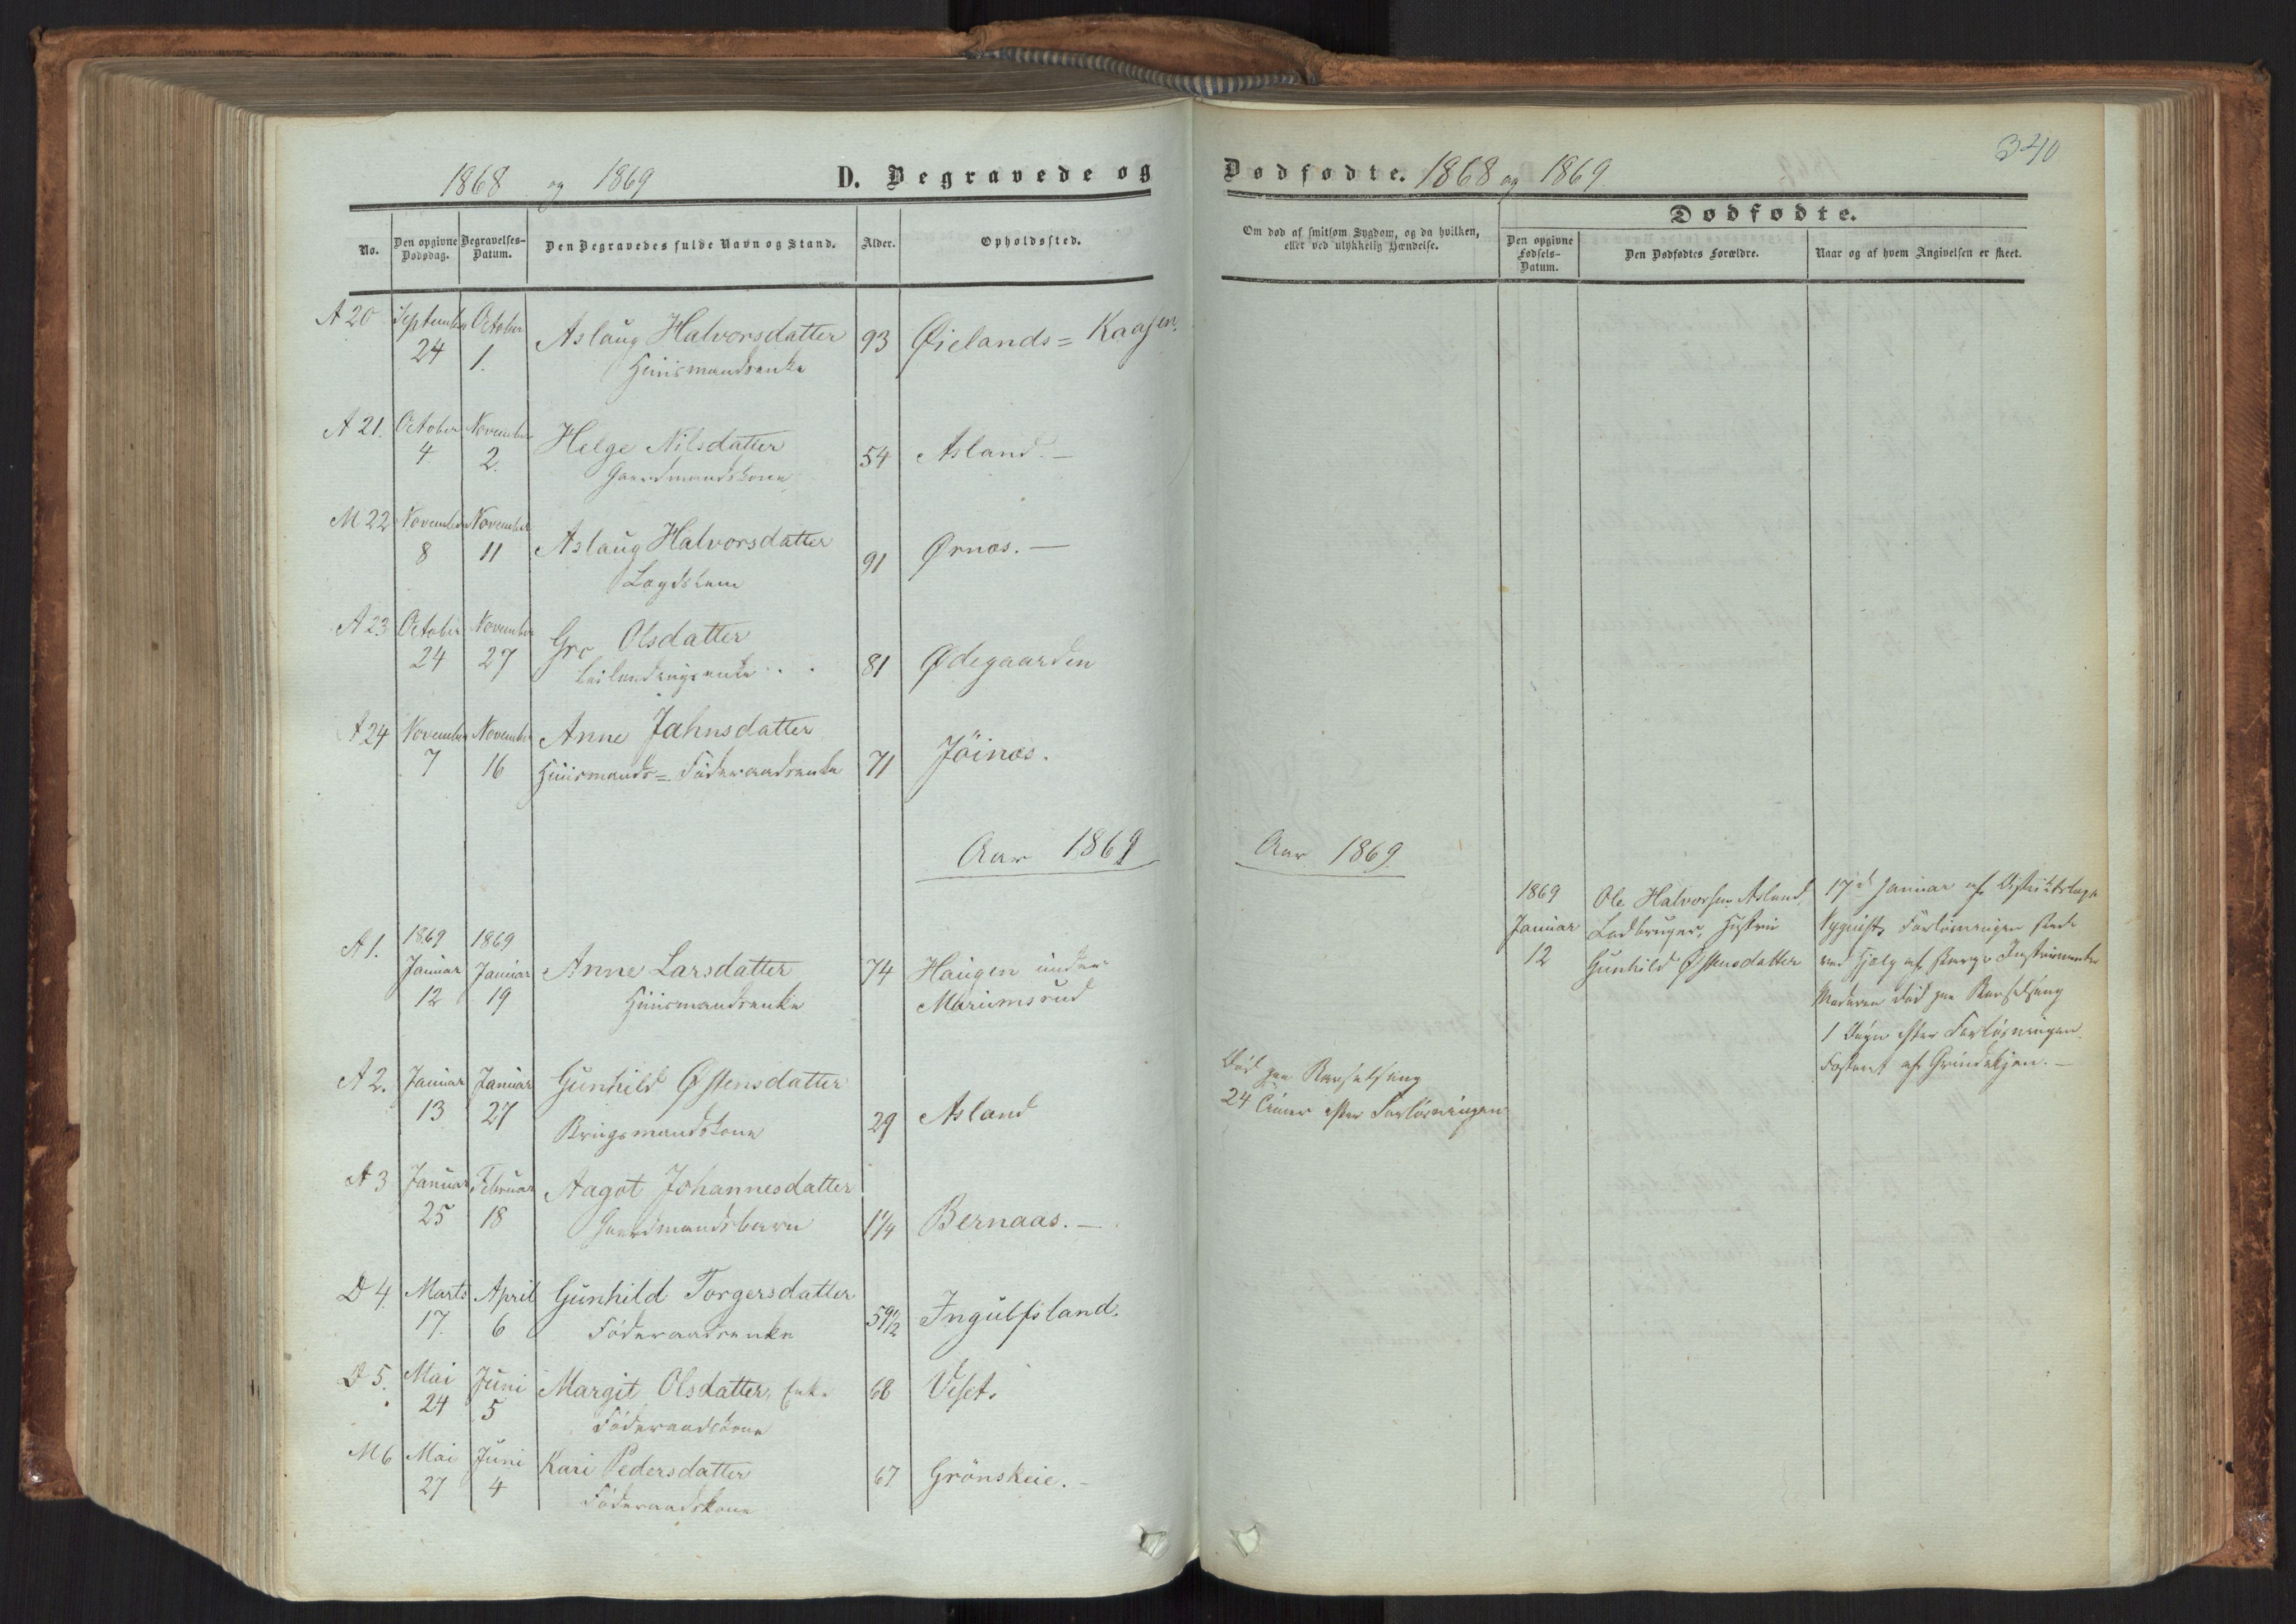 1868 og 1869 D. Begravede og
No. Den opgivne Dødsdag. Begravelses-Datum. Den Begravedes fulde Navn og Stand. Alder. Opholdssted.
A 20 September 24 October 1. Aslaug Halvorsdatter 93 Øielands= Kaasen.
Huusmandsenke
A 21. October 4 November 2. Helge Nilsdatter 54 Asland. –
Gaardmandskone
M 22 November 8 November 11 Aslaug Halvorsdatter 91 Ørnæs. –
Lægdslem
A 23 October 24 November 27 Gro Olsdatter 81 Ødegaarden
Leilendingsenke
A 24 November 7 November 16 Anne Jahnsdatter 71 Jöinæs.
Huusmands= Föderaadsenke
Aar 1869
A 1. 1869 Januar 12 1869 Januar 19 Anne Larsdatter 74 Haugen under
Huusmandsenke Mariumsrud
A 2. Januar 13 Januar 27 Gunhild Østensdatter 29 Asland
Brugsmandskone
A 3 Januar 25 Februar 18 Aagot Johannesdatter 1 1/4 Bernaas. –
Gaardmandsbarn
D 4. Marts 17. April 6 Gunhild Torgersdatter 59 1/2 Ingulfsland.
Föderaadsenke
D 5. Mai 24 Juni 5 Margit Olsdatter, Enke 68 Veset.
Föderaadskone
M 6 Mai 27 Juni 4 Kari Pedersdatter 67 Grönskeie. –
Föderaadskone
340
Dødfødte. 1868 og 1869.
Dødfødte.
Om død af smitsom Sygdom, og da hvilken,
eller ved ulykkelig Hændelse.
Den opgivne Fødsels-Datum. Den Dødfødtes Forældre. Naar og af hvem Angivelsen er skeet.
Aar 1869.
1869 Ole Halvorsen Asland 17d Januar af Distriktslæge
Januar Ladbruger, Hustru Nyquist, Forløsningen skede
12 Gunhild Østensdatter ved Hjelp af skarpe Instrumenter
Moderen död paa Barselseng
1 Døgn efter Forløsningen.
Fosteret af Qvindekjøn. –
Död paa Barselseng
24 Timer efter Forløsningen